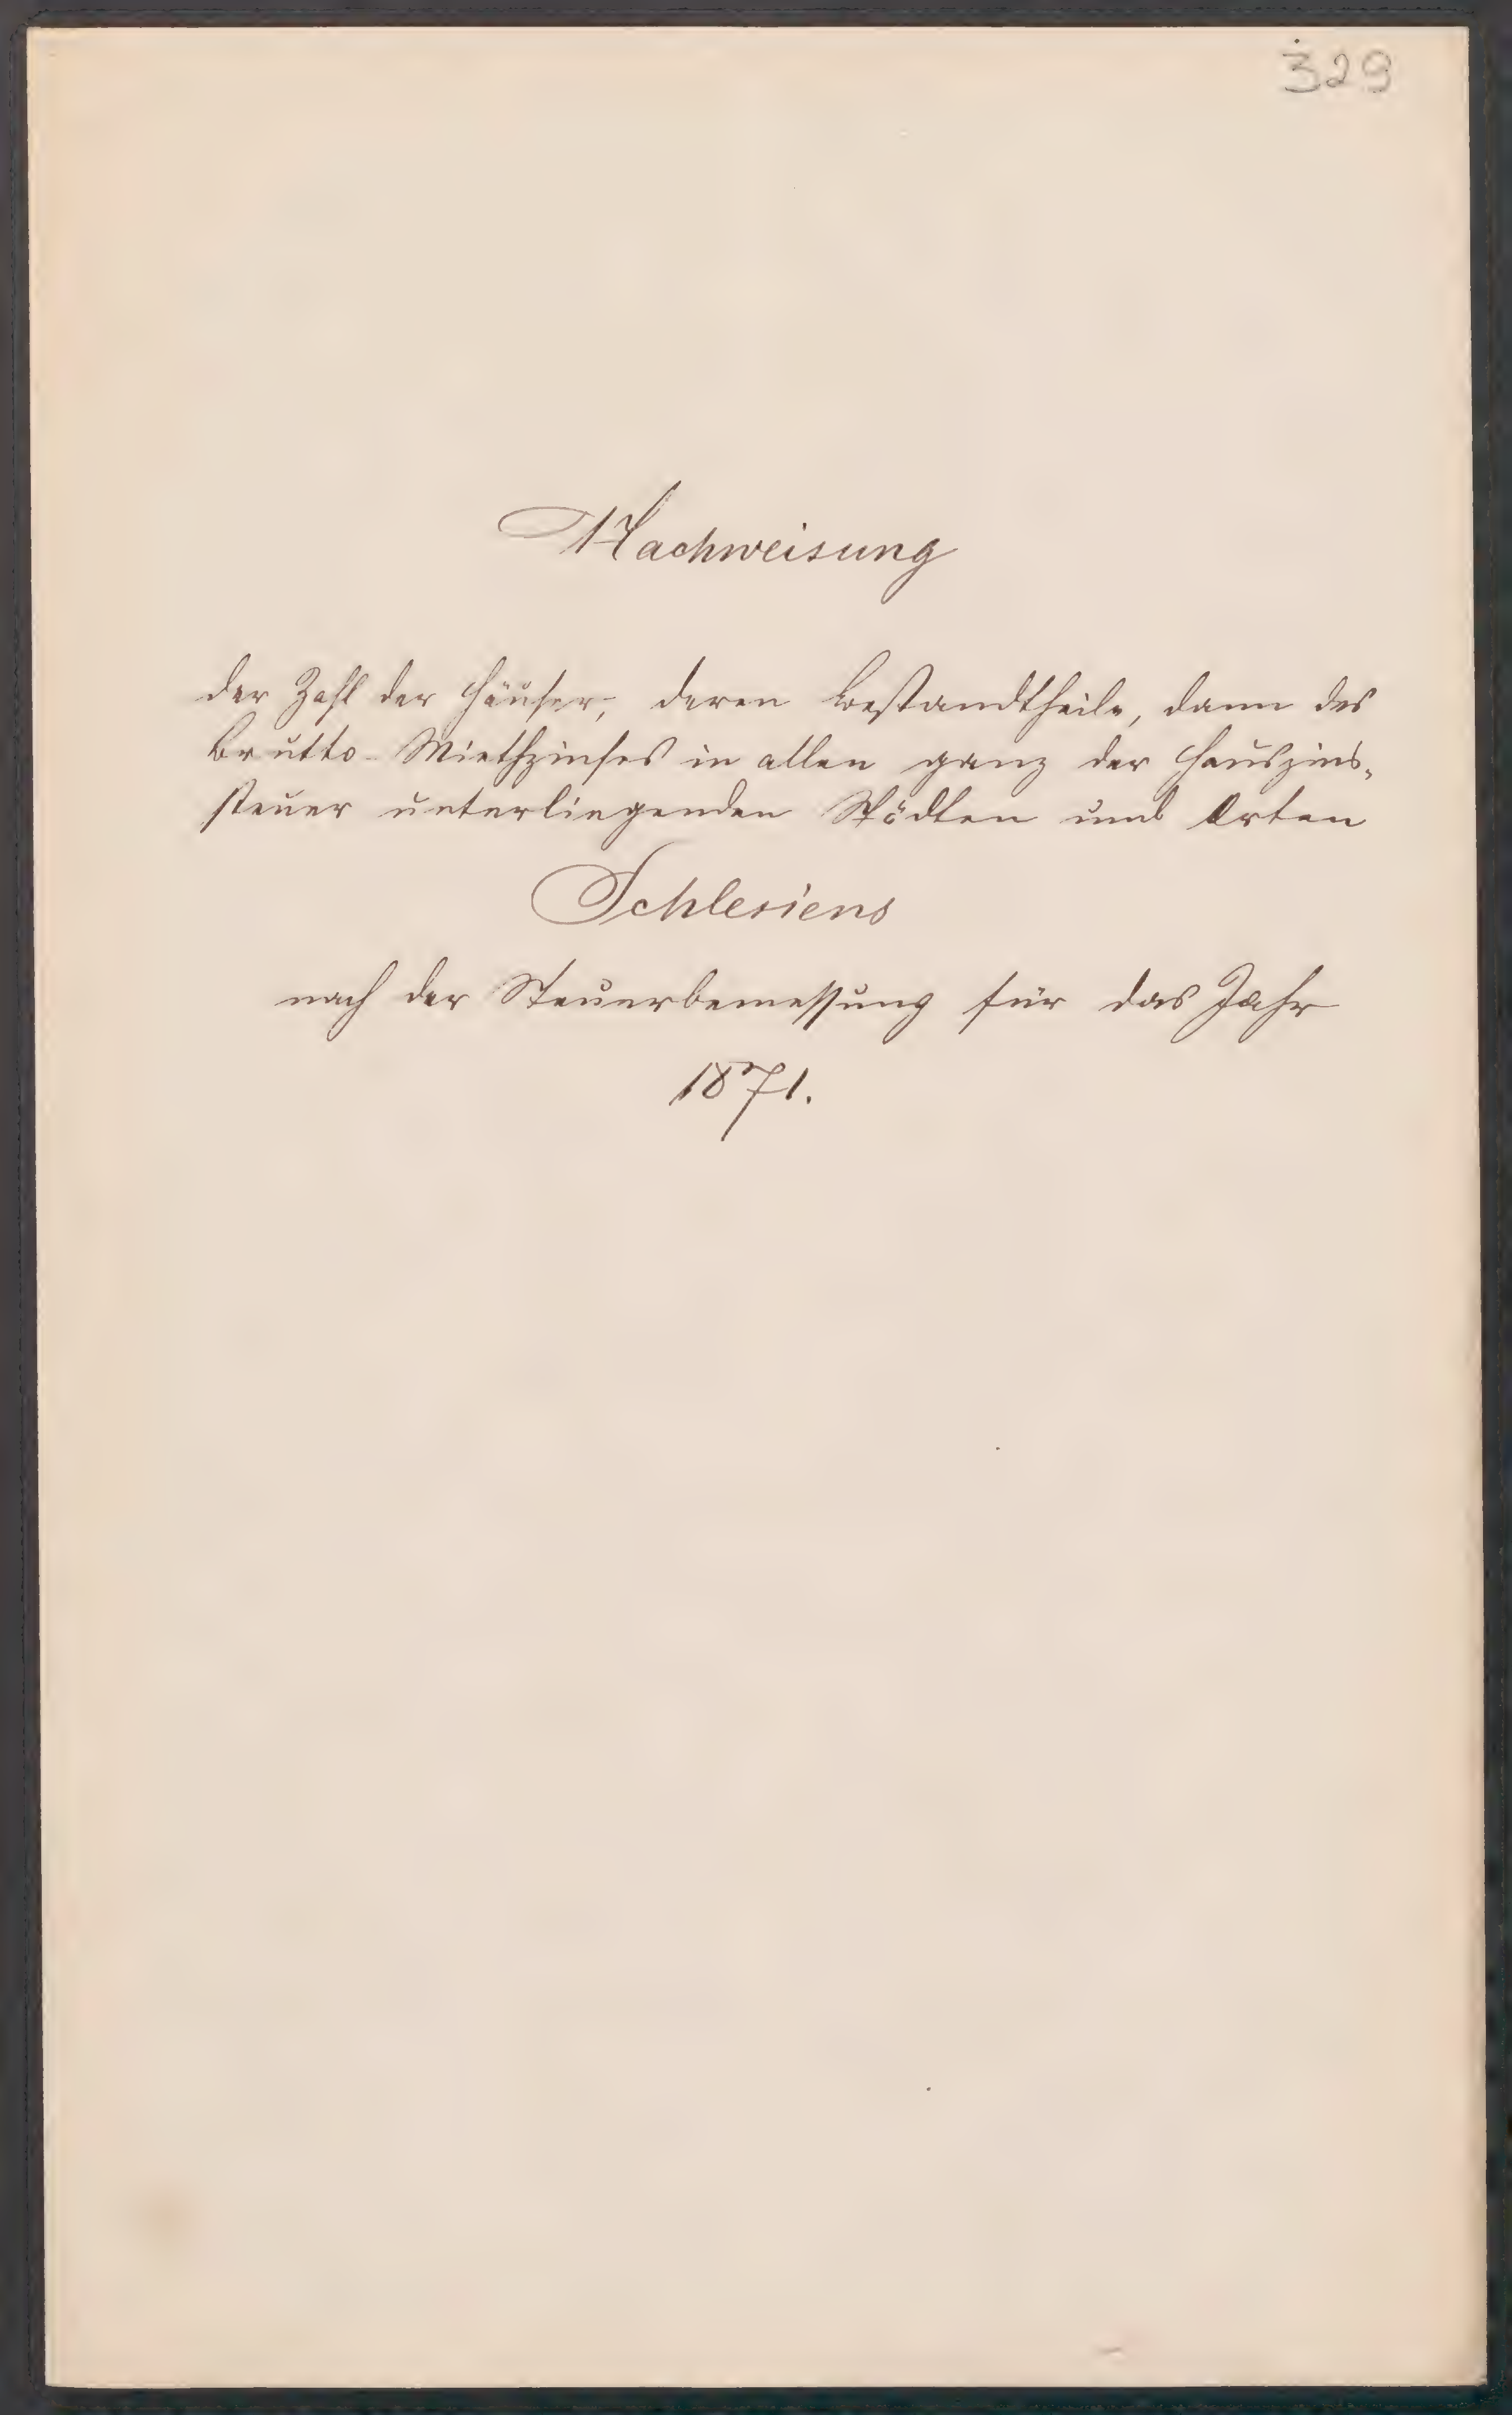 329
Nachweisung
der Zahl der Häuser, deren Bestandtheile, dann des
Brutto-Miethzinses in allen ganz der Hauszins-
steuer unterliegenden Städten und Orten
Schlesiens
nach der Steuerbemessung für das Jahr
1871.